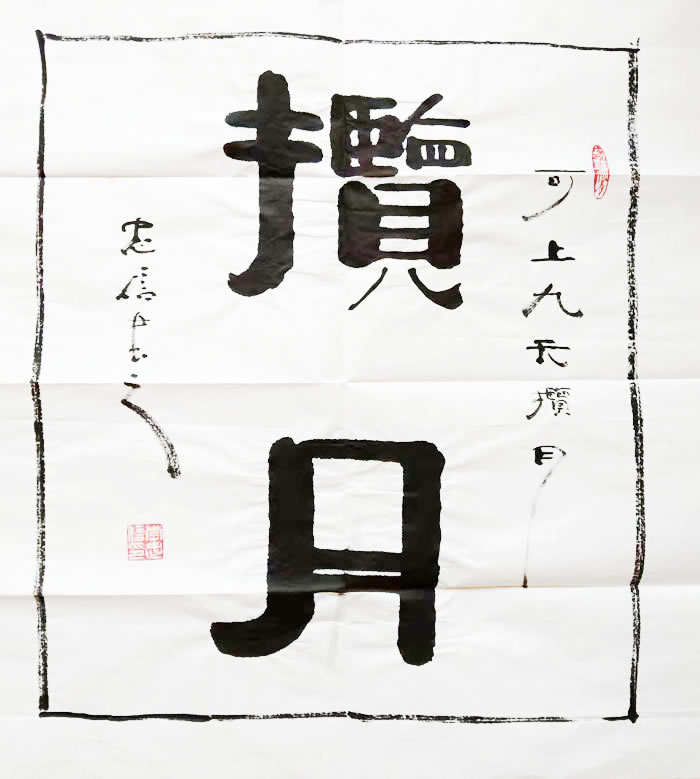 攬月
可上九天攬月
忠信